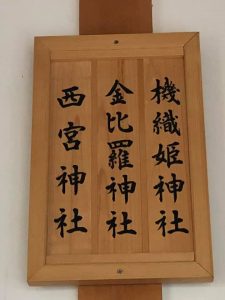 機織姫神社
金比羅神社
西宮神社